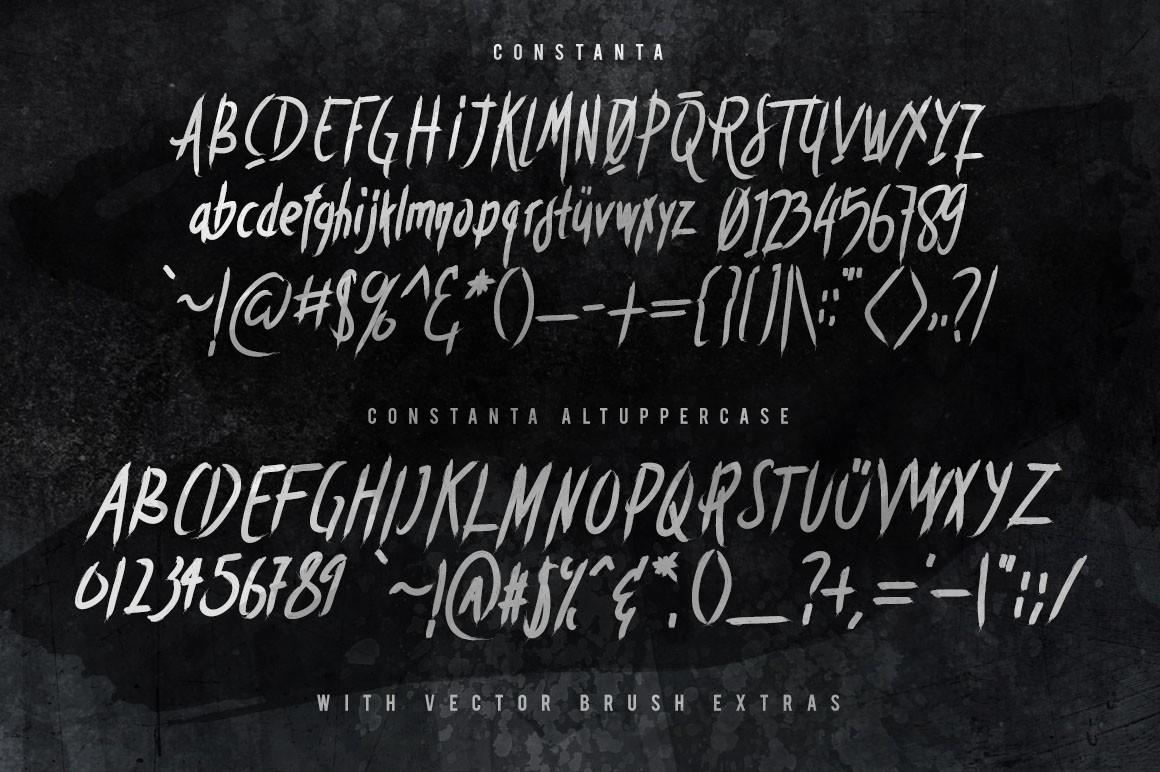 CONSTANTA
ABCDEFGHiJKLMNØPQ̄RSTUVWXYZ
abcdefghijklmnopqrstüvwxyz Ø123456789
`~!@#$%^&*()_-+={}[]|\:;"'<>,.?/
CONSTANTA ALTUPPERCASE
ABCDEFGHIJKLMNOPQRSTUÜVWXYZ
0123456789 `~!@#$%^&*.()_?+,='-|":;/
WITH VECTOR BRUSH EXTRAS